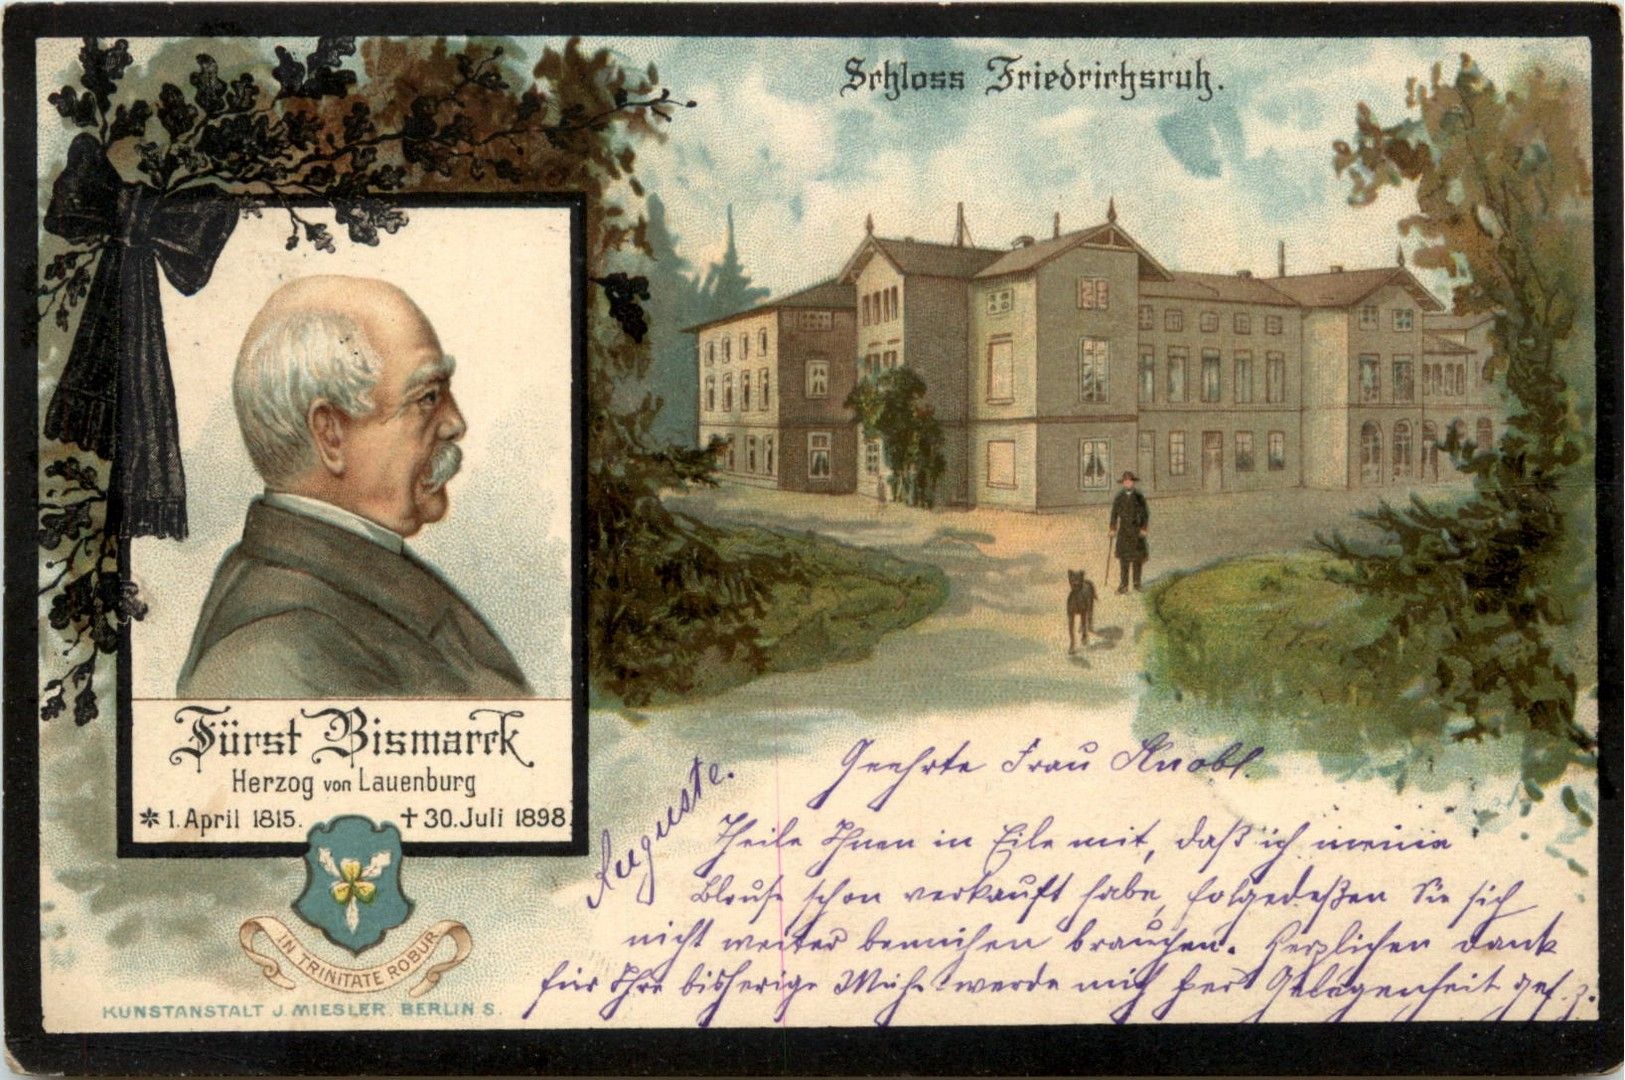 Schloss Friedrichsruh.
Fürst Bismarck
Herzog von Lauenburg
* 1. April 1815. † 30. Juli 1898.
IN TRINITATE ROBUR
KUNSTANSTALT J. MIESLER. BERLIN S.
Geehrte Frau Knobl.
Theile Ihnen in Eile mit, daß ich meine
Blouse schon verkauft habe, folgedeßen Sie sich
nicht weiter bemühen brauchen. Herzlichen Dank
für Ihre bisherige Mühe werde mich bei Gelegenheit gef. z.
Auguste.